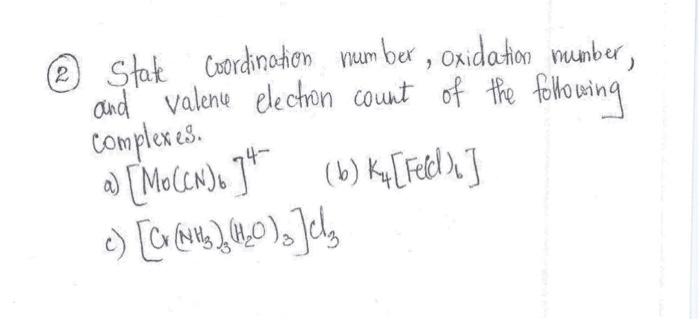 ② State Coordination number, Oxidation number,
and valence electron count of the following
complexes.
a) [Mo(CN)6]4- (b) K4[Fe(Cl)6]
c) [Cr(NH3)3(H2O)3]Cl3